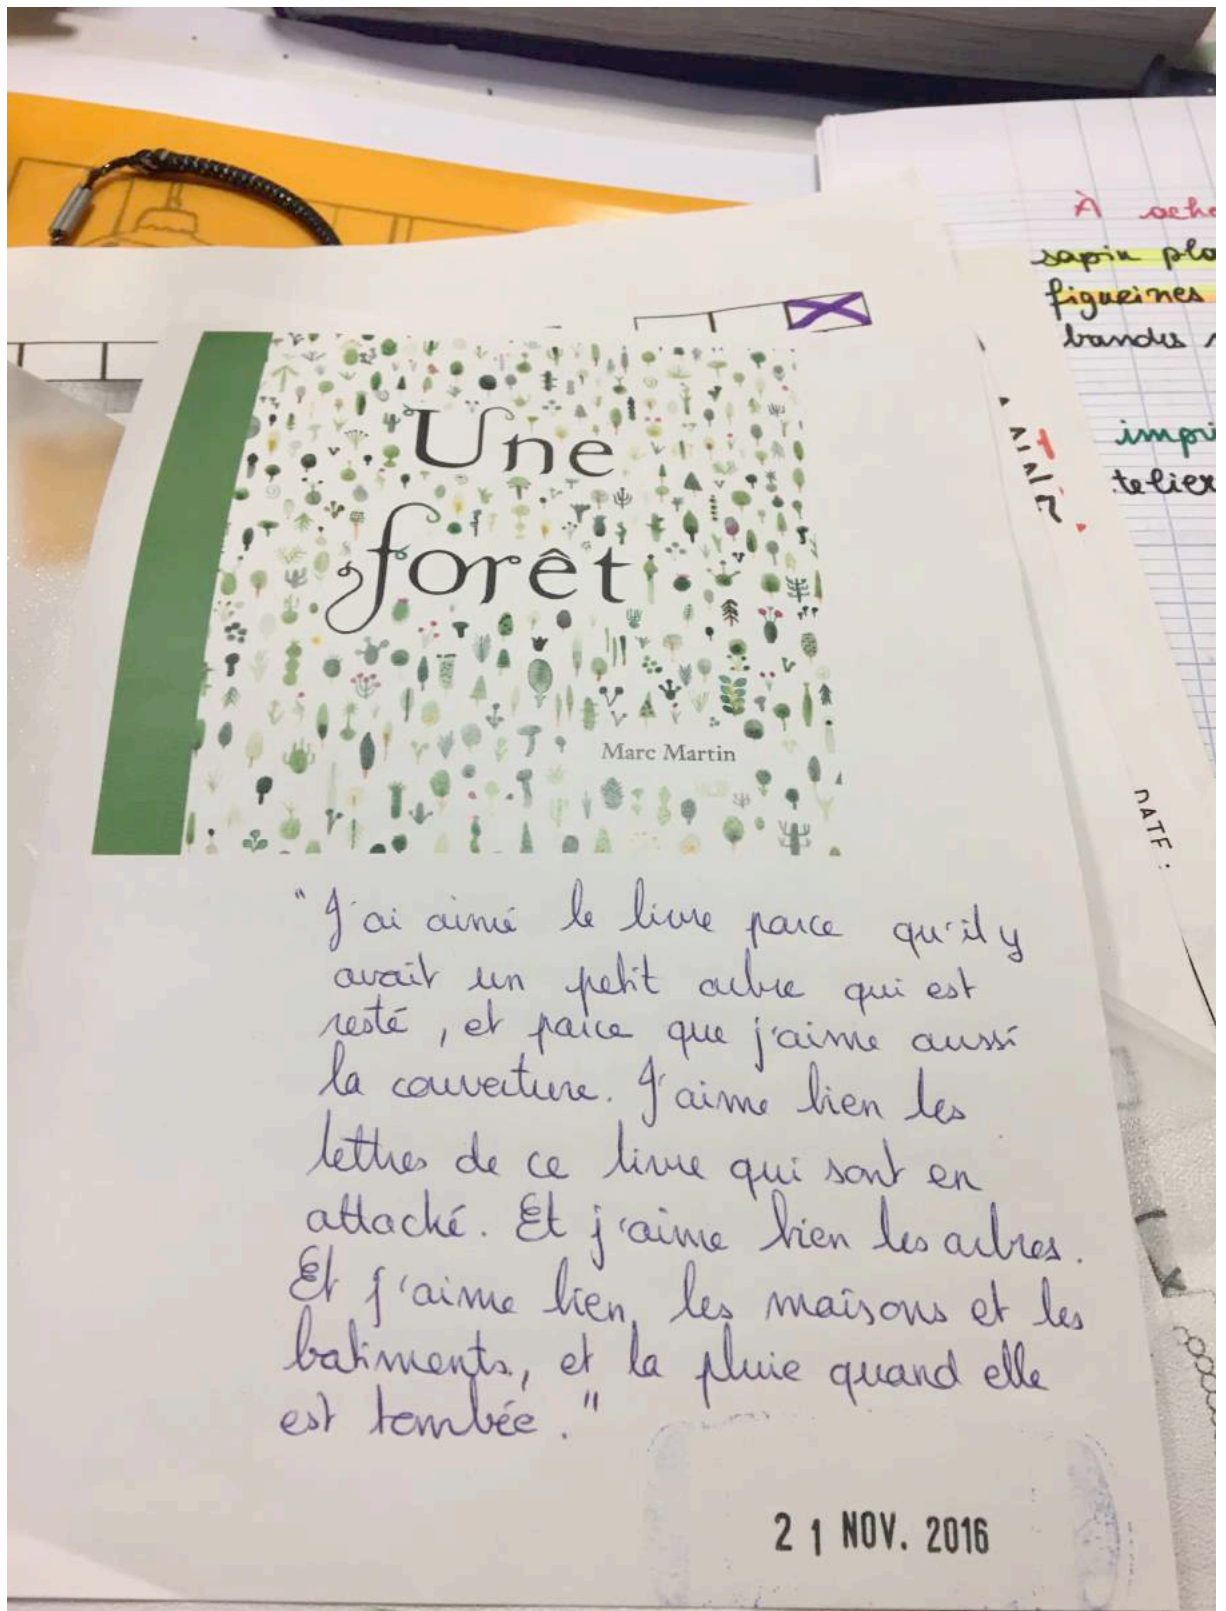 À
sapin
figurines
bandes
Une
forêt
Marc Martin
DATE :
"J'ai aimé le livre parce qu'il y
avait un petit arbre qui est
resté, et parce que j'aime aussi
la couverture. J'aime bien les
lettres de ce livre qui sont en
attaché. Et j'aime bien les arbres.
Et j'aime bien les maisons et les
batiments, et la pluie quand elle
est tombée."
21 NOV. 2016